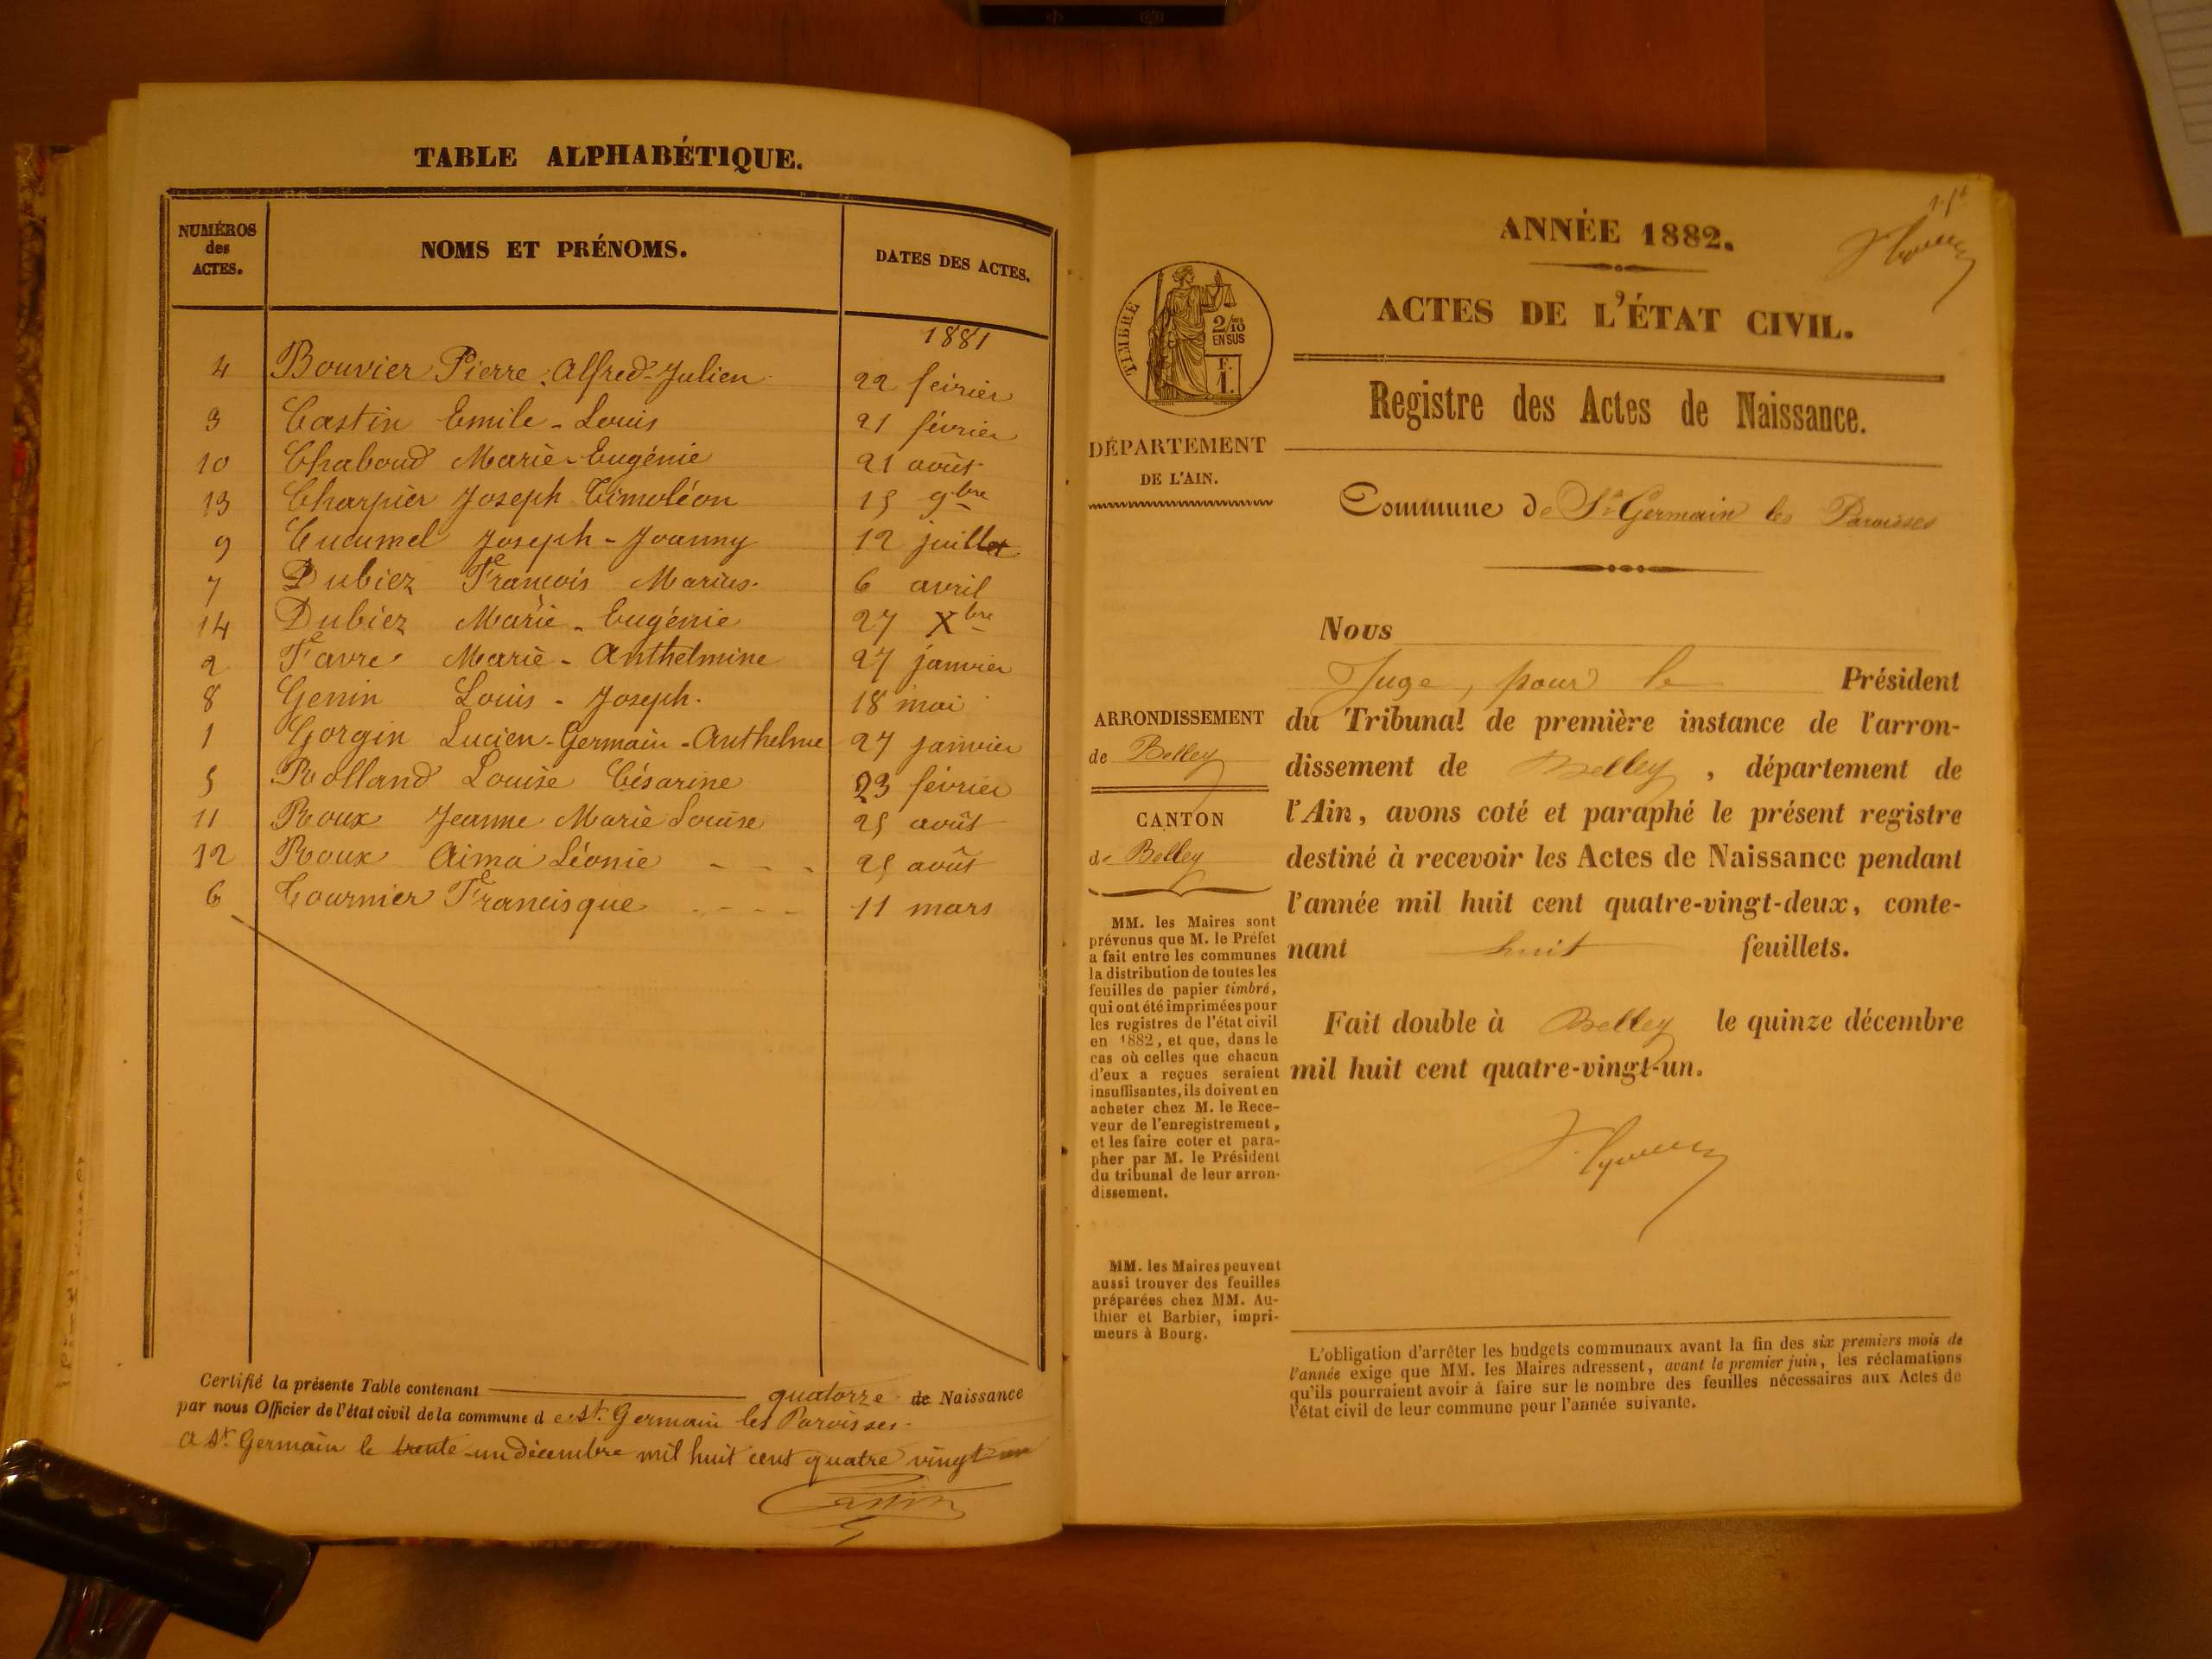 TABLE ALPHABÉTIQUE.
NUMÉROS des ACTES.
NOMS ET PRÉNOMS.
DATES DES ACTES.
1881
4 Bouvier Pierre Alfred-Julien 22 février
3 Castin Emile-Louis 21 février
10 Chaboud Marie-Eugénie 21 août
13 Charpier Joseph Timoléon 15 9bre
9 Cucumel Joseph-Joanny 12 juillet
7 Dubiez François Marius. 6 avril
14 Dubiez Marie-Eugénie 27 Xbre
2 Favre Marie-Anthelmine 27 janvier
8 Genin Louis-Joseph. 18 mai
1 Gorgin Lucien-Germain-Anthelme 27 janvier
5 Rolland Louise Césarine 23 février
11 Roux Jeanne Marie Louise 25 août
12 Roux Aima Léonie - - - 25 août
6 Tournier Francisque - - - - 11 mars
Certifié la présente Table contenant quatorze de Naissance
par nous Officier de l'état civil de la commune d e St. Germain les Paroisses.
A St. Germain le trente-un décembre mil huit cent quatre vingt un
Castin
ANNÉE 1882.
ACTES DE L'ÉTAT CIVIL.
TIMBRE
2/10
EN SUS
F.
1.
Registre des Actes de Naissance.
DÉPARTEMENT
DE L'AIN.
Commune de St Germain les Paroisses
ARRONDISSEMENT
de Belley
CANTON
de Belley
MM. les Maires sont
prévenus que M. le Préfet
a fait entre les communes
la distribution de toutes les
feuilles de papier timbré,
qui ont été imprimées pour
les registres de l'état civil
en 1882, et que, dans le
cas où celles que chacun
d'eux a reçues seraient
insuffisantes, ils doivent en
acheter chez M. le Rece-
veur de l'enregistrement,
et les faire coter et para-
pher par M. le Président
du tribunal de leur arron-
dissement.
MM. les Maires peuvent
aussi trouver des feuilles
préparées chez MM. Au-
thier et Barbier, impri-
meurs à Bourg.
Nous
Juge, pour le Président
du Tribunal de première instance de l'arron-
dissement de Belley, département de
l'Ain, avons coté et paraphé le présent registre
destiné à recevoir les Actes de Naissance pendant
l'année mil huit cent quatre-vingt-deux, conte-
nant huit feuillets.
Fait double à Belley le quinze décembre
mil huit cent quatre-vingt-un.
L'obligation d'arrêter les budgets communaux avant la fin des six premiers mois de
l'année exige que MM. les Maires adressent, avant le premier juin, les réclamations
qu'ils pourraient avoir à faire sur le nombre des feuilles nécessaires aux Actes de
l'état civil de leur commune pour l'année suivante.